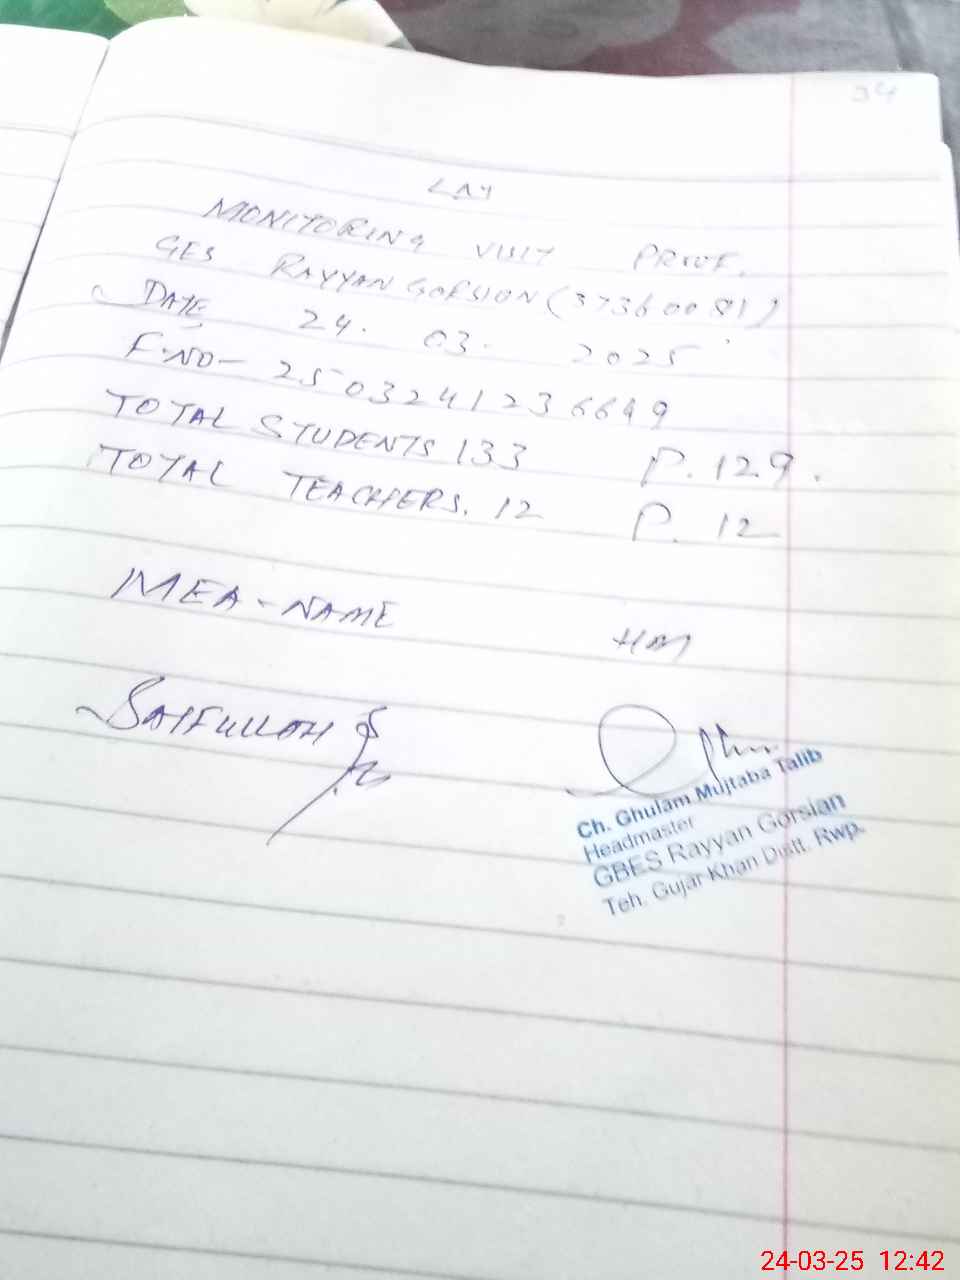 34
MONITORING VISIT PROOF.
GES RAYYAN GORSION (37360081)
DATE 24. 03. 2025
F.NO- 2503241236649
TOTAL STUDENTS 133 P. 129.
TOTAL TEACHERS. 12 P. 12
MEA-NAME
HM
SAIFULLAH
Ch. Ghulam Mujtaba Talib
Headmaster
GBES Rayyan Gorsian
Teh. Gujar Khan Distt. Rwp.
24-03-25 12:42